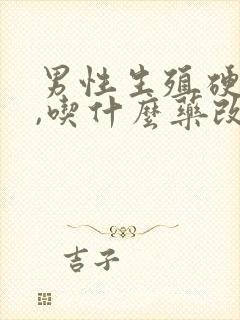 男性生殖硬
,喫什麼藥改
吉子